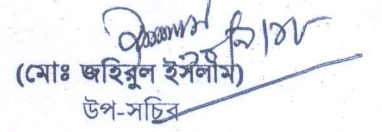 (মোঃ জহিরুল ইসলাম)
উপ-সচিব